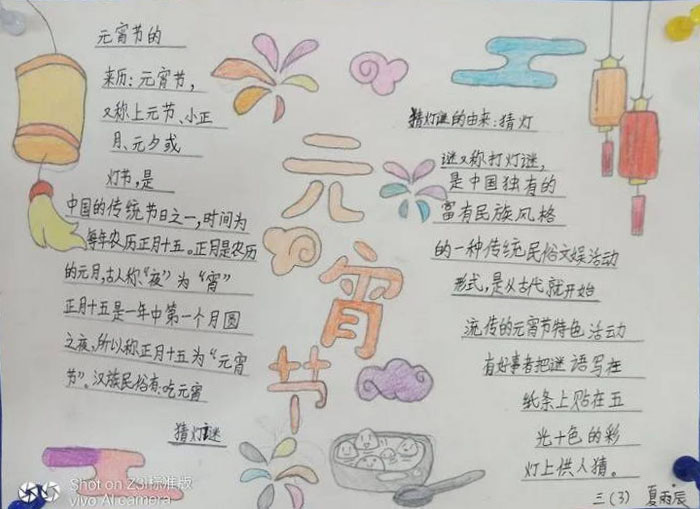 元宵节的
来历：元宵节，
又称上元节、小正
月、元夕或
灯节，是
中国的传统节日之一，时间为
每年农历正月十五。正月是农历
的元月，古人称“夜”为“宵”
正月十五是一年中第一个月圆
之夜，所以称正月十五为“元宵
节”。汉族民俗有：吃元宵
猜灯谜
元
宵
节
猜灯谜的由来：猜灯
谜又称打灯谜，
是中国独有的
富有民族风格
的一种传统民俗文娱活动
形式，是从古代就开始
流传的元宵节特色活动
有好事者把谜语写在
纸条上贴在五
光十色的彩
灯上供人猜。
三（3） 夏雨辰
Shot on Z3i标准版
vivo AI camera